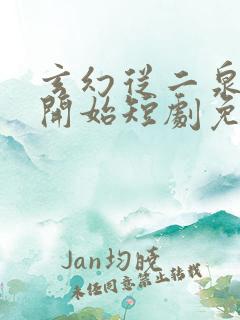 玄幻從二泉
開始短劇免
Jan均曉
未经同意禁止转载